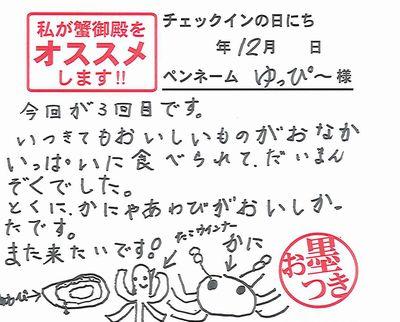 私が蟹御殿を
オススメ
します!!
チェックインの日にち
年 12月 日
ペンネーム ゆっぴ〜 様
今回が3回目です。
いつきてもおいしいものがおなか
いっぱいに食べられて、だいまん
ぞくでした。
とくに、かにゃあわびがおいしかっ
たです。
また来たいです!
たこウインナー
かに
あわび
お墨つき